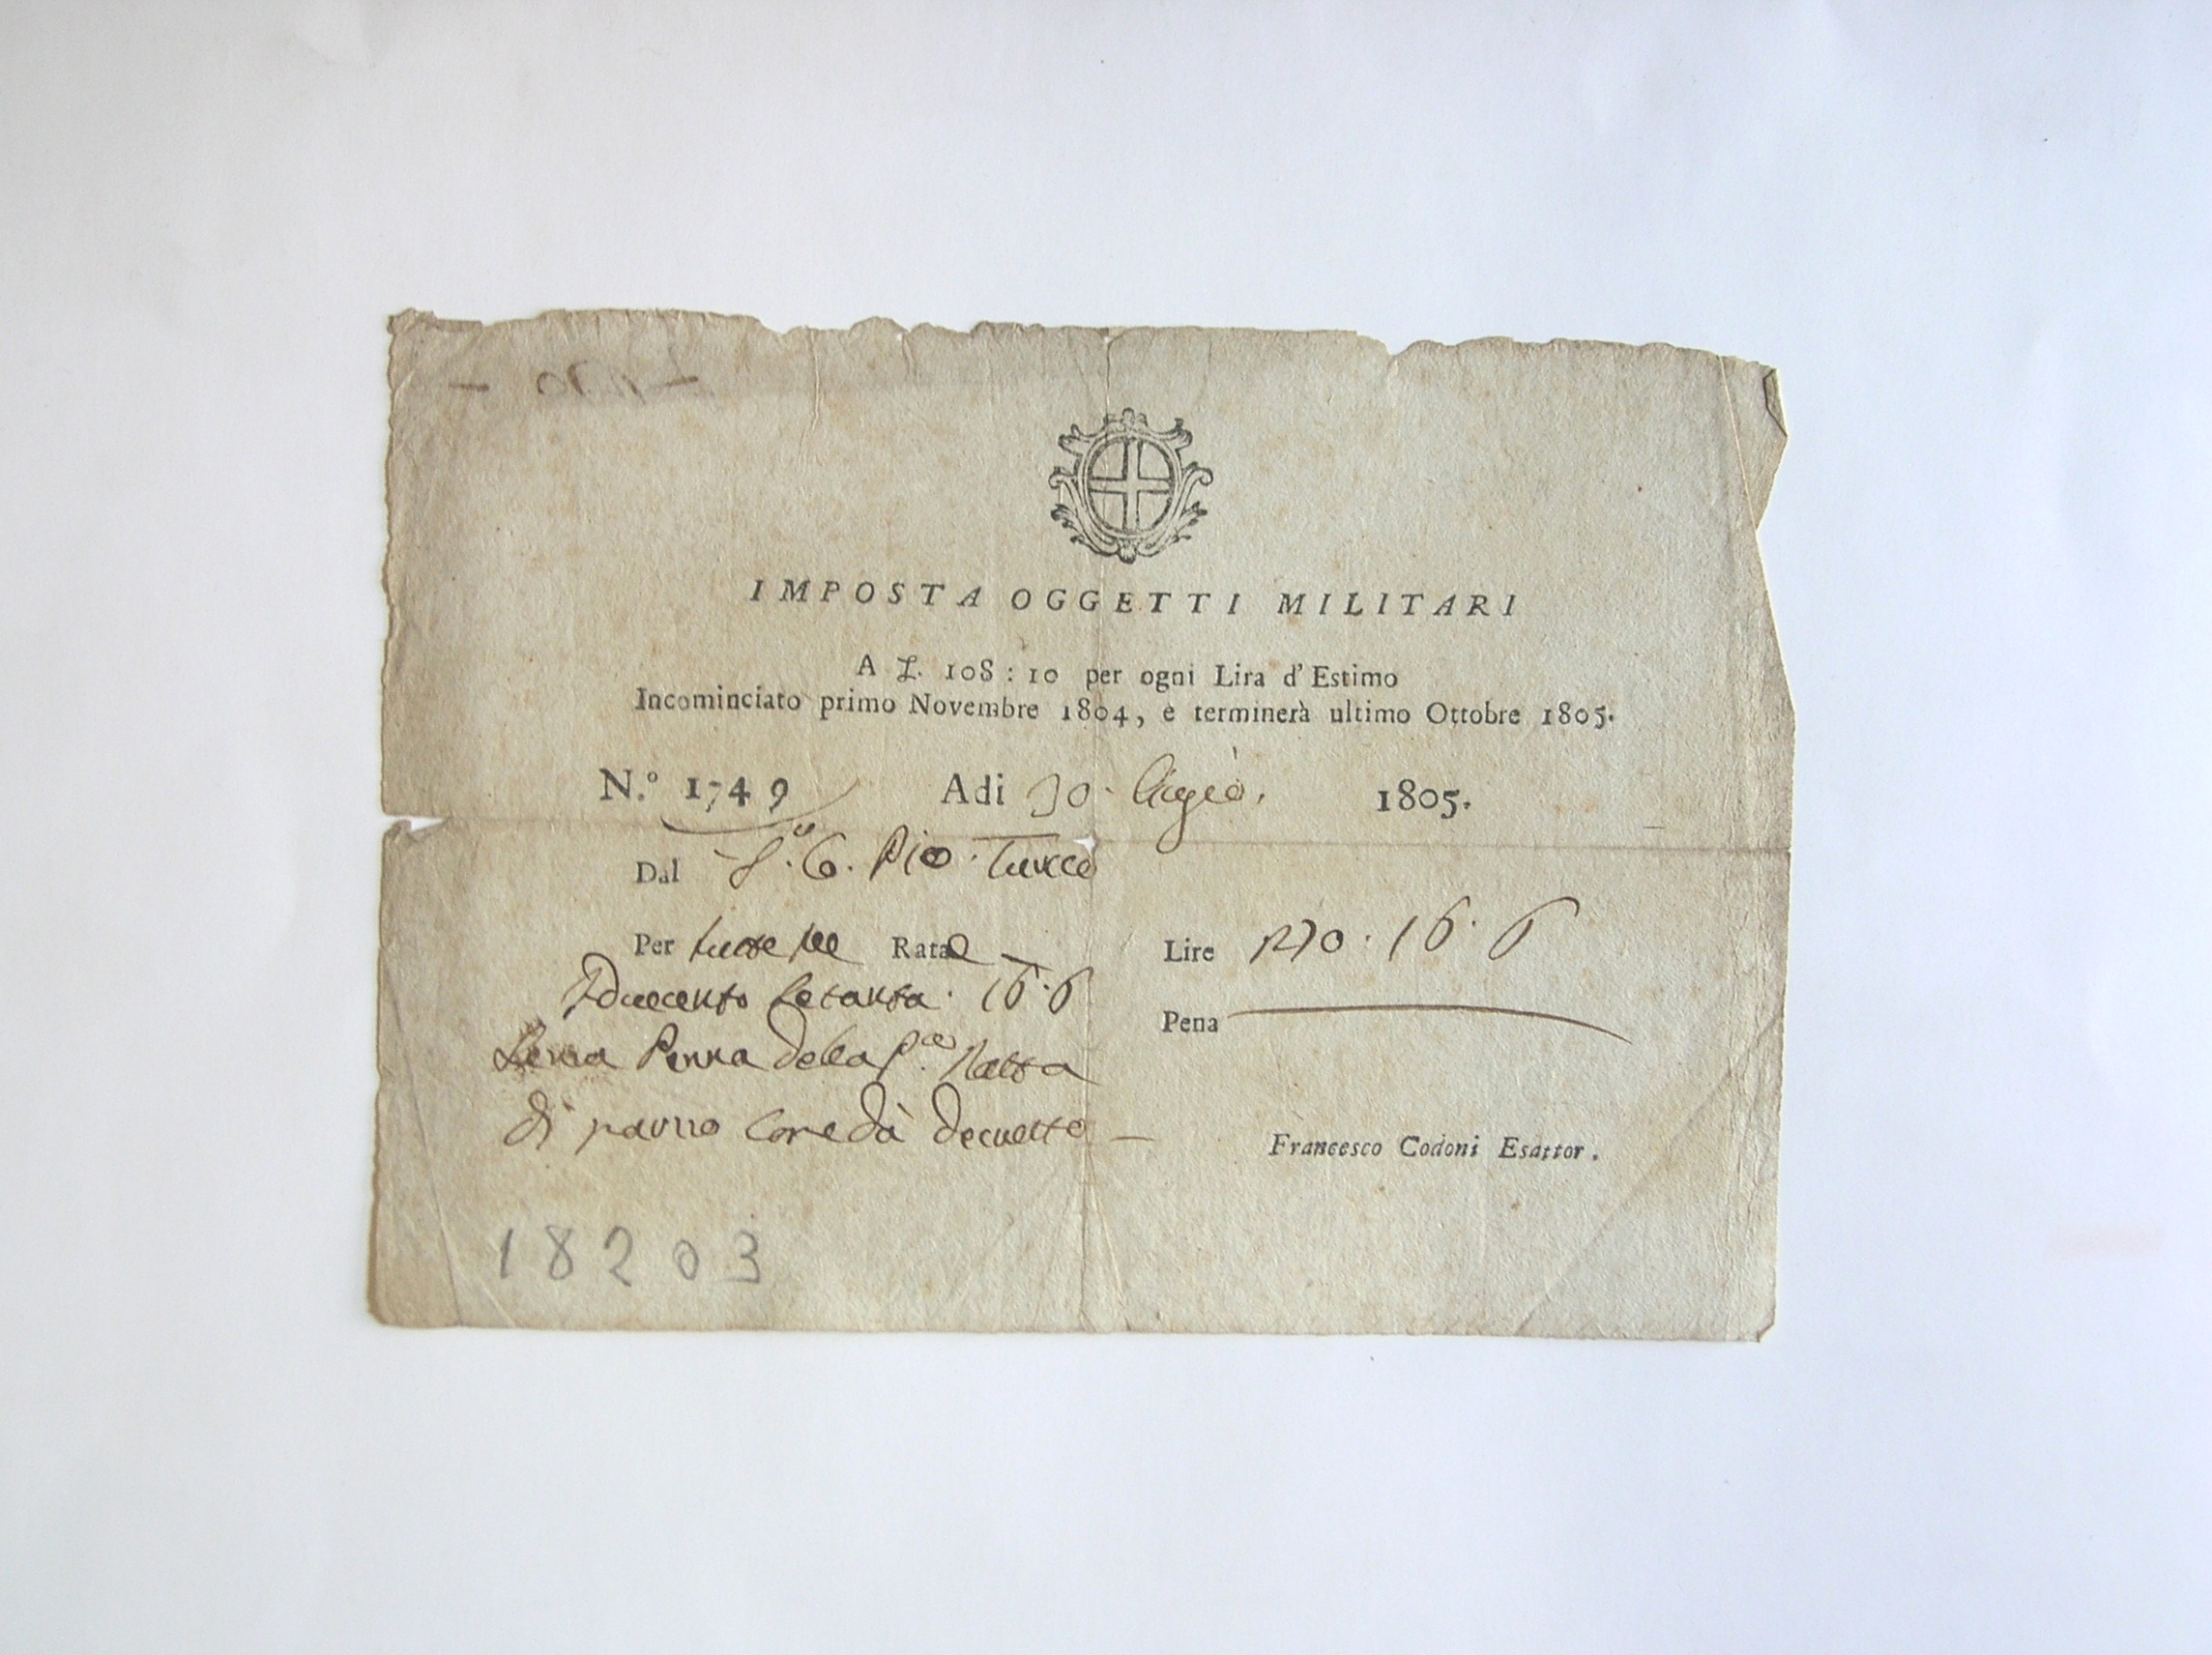 IMPOSTA OGGETTI MILITARI
A L. 108 : 10 per ogni Lira d' Estimo
Incominciato primo Novembre 1804, e terminerà ultimo Ottobre 1805.
N.º 1749 Adi 30. 1805.
Dal Pio Turco
Per tutte le Ratae Lire 270. 16. 6
Duecento setanta. 16. 6
Pena
della
di
Francesco Codoni Esattor.
18203